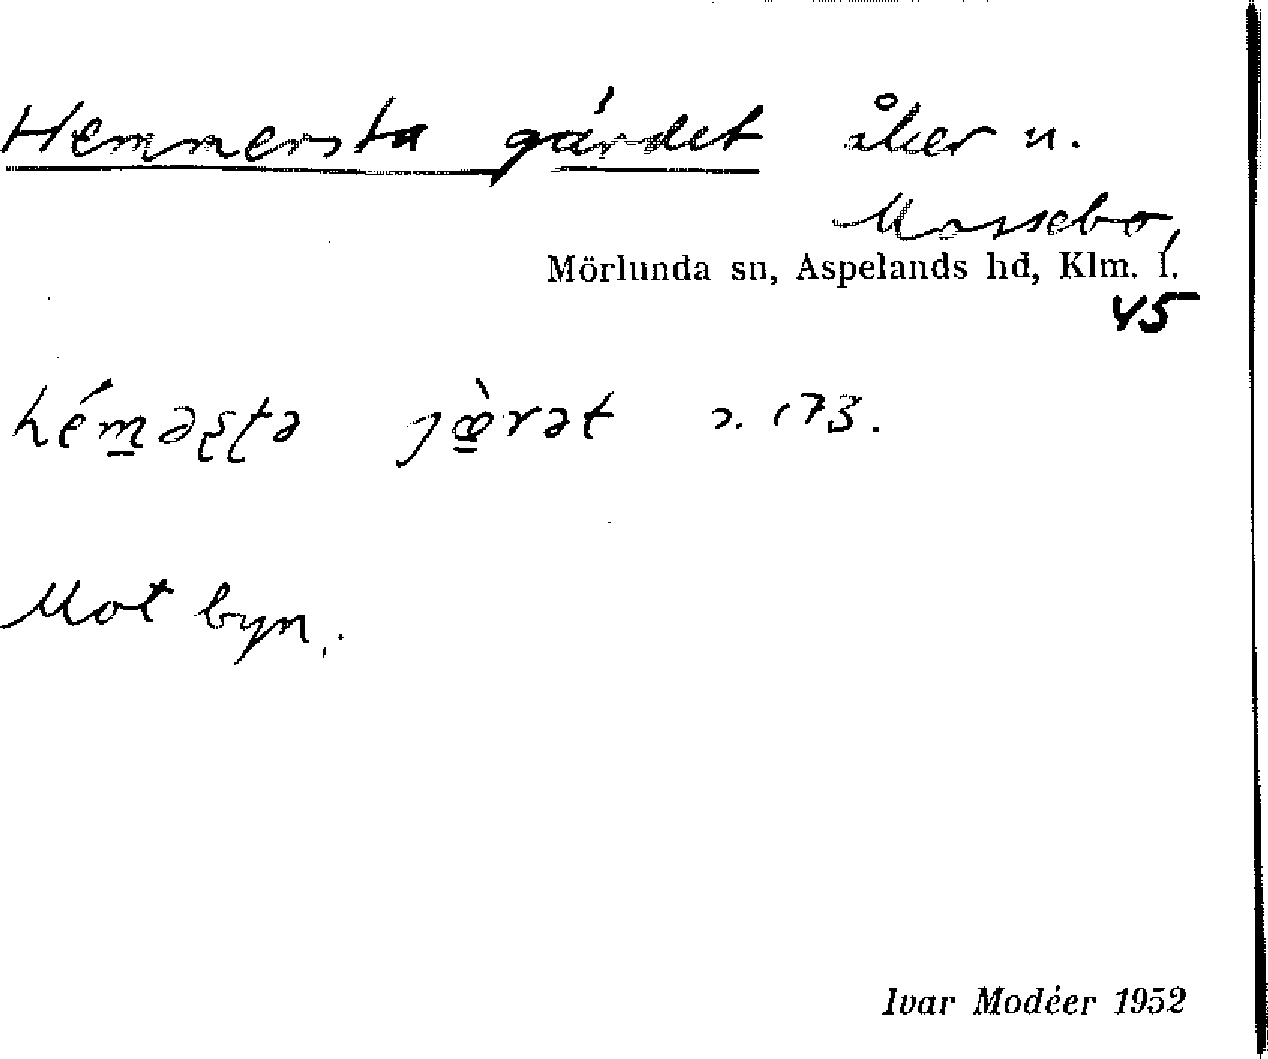 Hemmersta gärdet åker n.
Mossebo,
Mörlunda sn, Aspelands hd, Klm. l.
45
hém̲əʂʈə jœ̲̀rət 173.
Mot byn.
Ivar Modéer 1952